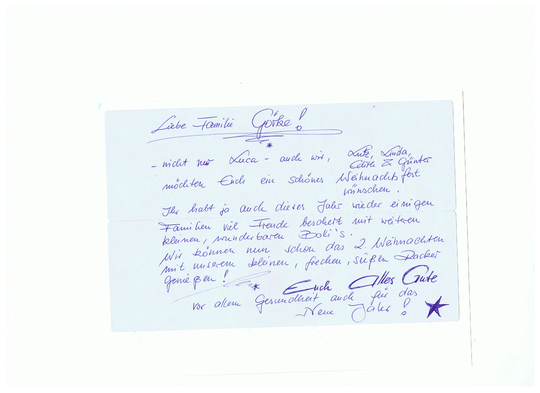 Liebe Familie Götke!
- nicht nur Luca - auch wir, Lutz, Linda,
Edith & Günter
möchten Euch ein schönes Weihnachtsfest
wünschen.
Ihr habt ja auch dieses Jahr wieder einigen
Familien viel Freude beschert mit weiteren
kleinen, wunderbaren Bolis's.
Wir können nun schon das 2. Weihnachten
mit unserem kleinen, frechen, süßen Racker
genießen!
Euch Alles Gute
vor allem Gesundheit auch für das
Neue Jahr!